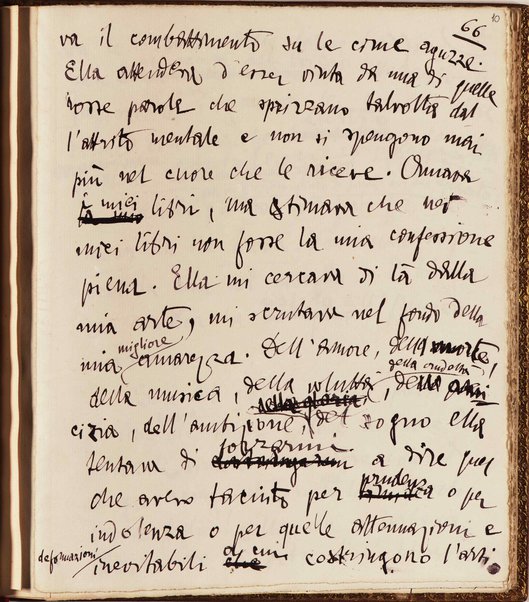 10
66
va il combattimento su le cime aguzze.
Ella attendeva d'esser vinta da una di quelle
rosse parole che sprizzano talvolta dal
l'attrito mentale e non si spengono mai
più nel cuore che le riceve. Amava
i miei libri, ma stimava che nei
miei libri non fosse la mia confessione
piena. Ella mi cercava di là dalla
mia arte, mi scrutava nel fondo della
mia migliore amarezza. Dell'Amore, della morte,
della musica, della voluttà, della crudeltà, dell'ami
cizia, dell'ambizione, del sogno ella
tentava di forzarmi a dire quel
che avevo taciuto per prudenza o per
indolenza o per quelle attenuazioni e
deformazioni inevitabili a cui costringono l'arti